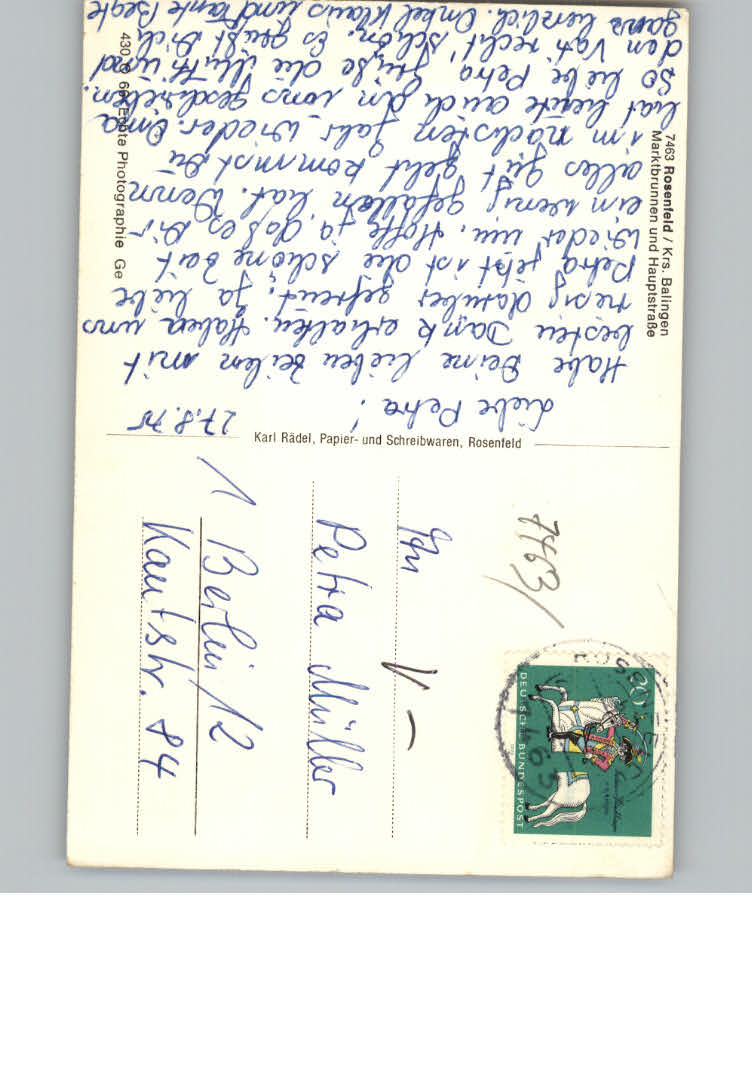 7463 Rosenfeld / Krs. Balingen
Marktbrunnen und Hauptstraße
27.8.70
Liebe Petra!
Habe Deine lieben Zeilen mit
besten Dank erhalten. Haben uns
riesig darüber gefreut. Ja liebe
Petra jetzt ist die schöne Zeit
wieder um. Hoffe ja, daß es Dir
ein wenig gefallen hat. Wenn
alles gut geht kommst Du
im nächsten Jahr wieder. Oma
hat heute auch an uns geschrieben.
So liebe Petra grüße die Mutti und
den Vati recht schön. Es grüßt Dich
ganz herzlich. Onkel Klaus und Tante Beate
Karl Rädel, Papier- und Schreibwaren, Rosenfeld
Photographie Ge
7463/
ROSENFELD
7463
20
DEUTSCHE BUNDESPOST
Petra Müller
1 Berlin 12
Kantstr. 84